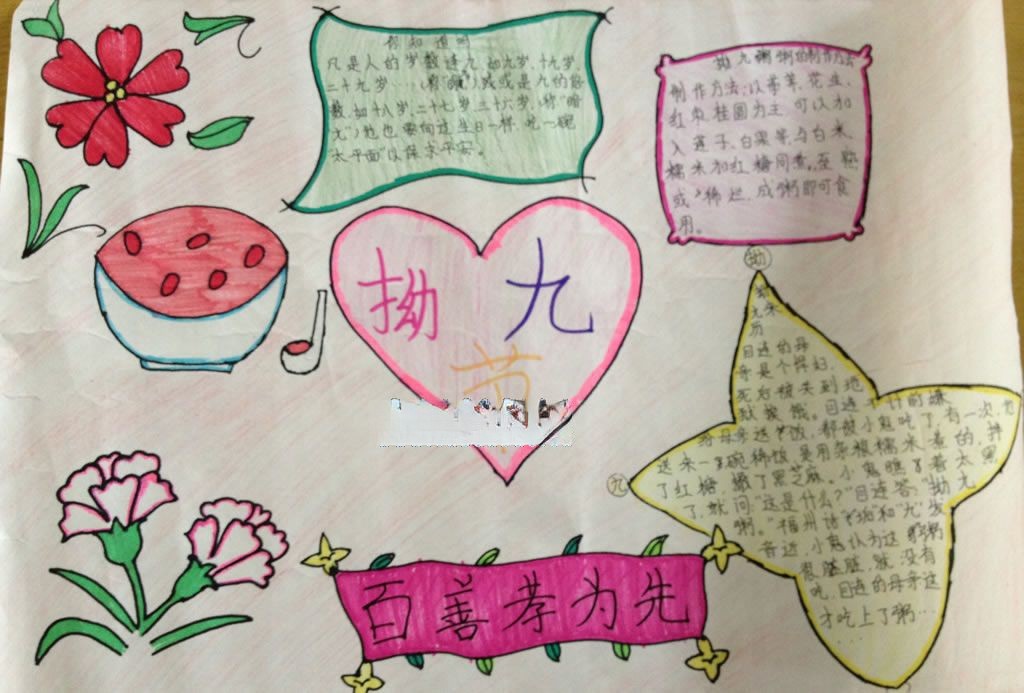 你知道吗
凡是人的岁数逢九,如九岁、十九岁、
二十九岁……(称"明九")或是九的倍
数,如十八岁、二十七岁、三十六岁,(称"暗
九")他也要向过生日一样,吃一碗
"太平面"以保求平安。
拗九粥粥的制作方法
制作方法:以荸荠、花生、
红枣、桂圆为主,可以加
入莲子、白果等,与白米、
糯米和红糖同煮。至熟
或稀烂,成粥即可食
用。
拗
九
节
拗
九
拗
九来
历
目连的母
亲是个悍妇,
死后被关到地
狱挨饿。目连
给母亲送饭,都被小鬼吃了,有一次,他
送来一碗稀饭,是用杂粮糯米煮的,拌
了红糖,撒了黑芝麻。小鬼瞧着太黑
了,就问:"这是什么?"目连答:"拗九
粥。"福州话"拗"和"九"发
音近,小鬼认为这粥
很脏,就没有
吃,目连的母亲这
才吃上了粥…
百善孝为先